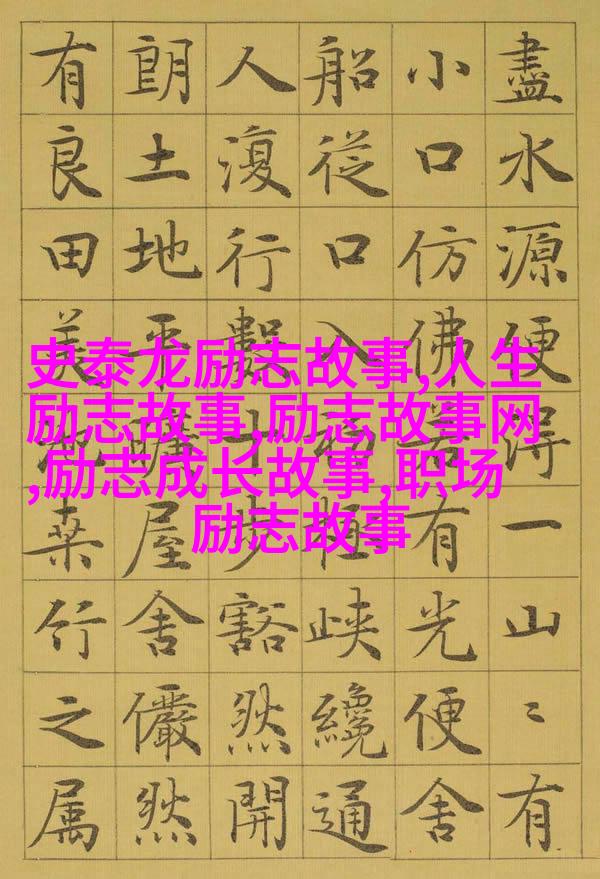 盡水源便得一山〻有
小口仿佛若有光便舍
船從口入初極峽纔通
人復行數十步豁然開
朗土地平曠屋舍儼然
有良田美池桑竹之属
史泰龙励志故事,人生
励志故事,励志故事网
,励志成长故事,职场
励志故事